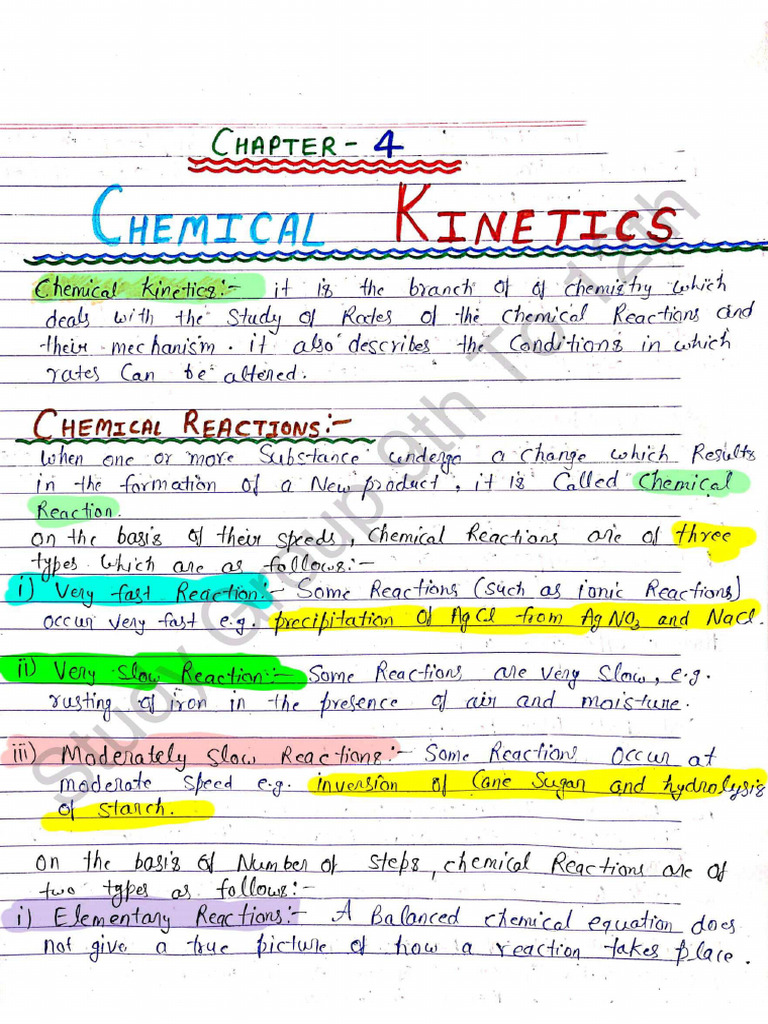 CHAPTER - 4
CHEMICAL KINETICS
Chemical Kinetics:- it is the branch of of chemistry which
deals with the Study of Rates of the Chemical Reactions and
their mechanism. it also describes the Conditions in which
rates Can be altered.
CHEMICAL REACTIONS:-
When one or more Substance undergo a change which Results
in the formation of a New product, it is Called Chemical
Reaction.
on the basis of their speeds, Chemical Reactions are of three
types which are as follows:-
i) Very fast Reaction:- Some Reactions (such as ionic Reactions)
occur very fast e.g. precipitation of AgCl from AgNO3 and NaCl.
ii) Very Slow Reaction:- Some Reactions are very slow, e.g.
rusting of iron in the presence of air and moisture.
iii) Moderately Slow Reactions:- Some Reactions occur at
moderate speed e.g. inversion of Cane Sugar and hydrolysis
of starch.
on the basis of Number of steps, chemical Reactions are of
two types as follows:-
i) Elementary Reactions:- A Balanced chemical equation does
not give a true picture of how a reaction takes place.
Study Group 9th To 12th